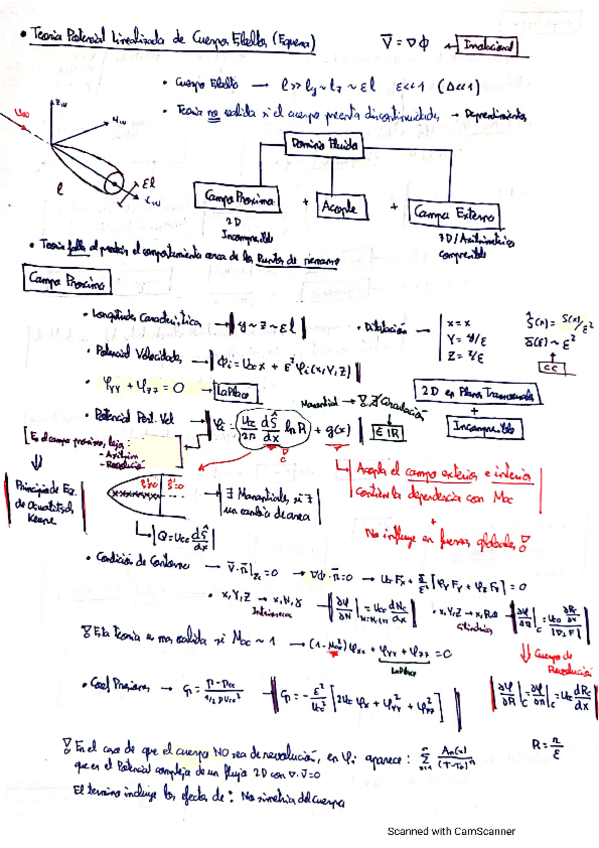 • Teoría Potencial Linealizada de Cuerpos Esbeltos (Esquema)
V̄ = ∇Φ → Irrotacional
• Cuerpo Esbelto → l >> ly ~ lz ~ εl ε<<1 (Δ<<1)
• Teoría no valida si el cuerpo presenta discontinuidades → Desprendimientos
U∞
Zw
Yw
Xw
εl
l
Dominio Fluido
Campo Proximo + Acople + Campo Externo
2D
Incompresible
3D/Axilsimetrico
compresible
• Teoria falla al predecir el comportamiento cerca de los Puntos de remanso
Campo Proximo
• Longitudes Características → y ~ z ~ εl
• Dilatación →
x = x
Y = y/ε
Z = z/ε
Ŝ(x) = S(x)/ε²
S(x) ~ ε²
CC
• Potencial Velocidades → Φi = U∞ x + ε² φi(x,Y,Z)
• φYY + φZZ = 0 → Laplace
2D en Planos Transversales
+
Incompresible
• Potencial Pert. Vel → φi = U∞/2π dŜ/dx ln R + g(x)
Manantial → ∄ Circulación
∈ IR
[En el campo proximo, flujo:
- Axilsim
- Revolución
Principio de Eq.
de Oswatitsch
Keune
∃ Manantiales, si ∃
un cambio de area
Q = U∞ dŜ/dx
Acopla el campo exterior e interior
Contiene la dependencia con M∞
+
No influye en fuerzas globales
• Condición de Contorno → V̄·n̄ = 0 → ∇Φ·n̄ = 0
• x,Y,Z → x,N,γ
Intrinsecas
• x,Y,Z → x,R,θ
Cilindricas
Cuerpo de
Revolución
Esta teoria es mas valida si M∞ ~ 1 → (1-M∞²) φxx + φYY + φZZ = 0
Laplace
• Coef Presiones → Cp = p - p∞ / 1/2 ρ U∞²
Cp = - ε²/U∞² [2U∞ φx + φY² + φZ²]
R = r/ε
En el caso de que el cuerpo NO sea de revolución, en φi aparece: Σ An(x)/(T-T0)ⁿ
que es el Potencial complejo de un flujo 2D con ∇·V̄=0
El termino incluye los efectos de: No simetria del cuerpo
Scanned with CamScanner